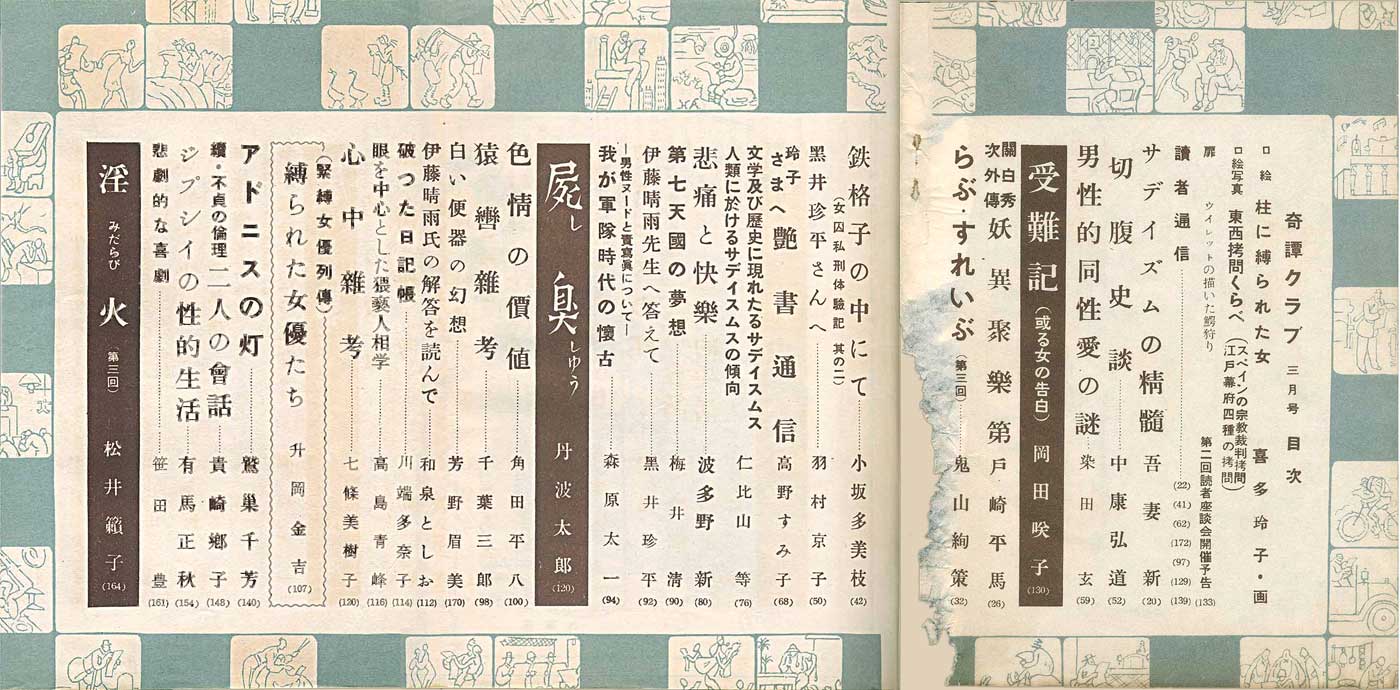 奇譚クラブ 三月号 目次
口絵 柱に縛られた女 喜多玲子・画
口絵写真 東西拷問くらべ (スペインの宗教裁判拷問 江戸幕府四種の拷問)
扉 ウイレットの描いた鰐狩り 第二回読者座談会開催予告 (133)
讀者通信 (22) (41) (62) (172) (97) (129) (139)
サデイズムの精髓 吾妻新 (20)
切腹史談 中康弘道 (52)
男性的同性愛の謎 染田玄 (59)
受難記 (或る女の告白) 岡田咲子 (130)
關白秀次外傳 妖異聚樂第 戸崎平馬 (26)
らぶ・すれいぶ (第三回) 鬼山絢策 (32)
鉄格子の中にて (女囚私刑体驗記 其の二) 小坂多美枝 (42)
黑井珍平さんへ 羽村京子 (50)
玲子さまへ 艶書通信 高野すみ子 (68)
文学及び歴史に現れたるサデイスムス
人類に於けるサデイスムスの傾向 仁比山等 (76)
悲痛と快樂 波多野新 (80)
第七天國の夢想 梅井清 (90)
伊藤晴雨先生へ答えて 黑井珍平 (92)
―男性ヌードと責寫眞について―
我が軍隊時代の懷古 森原太一 (94)
屍臭 しゆう 丹波太郎 (120)
色情の價値 角田平八 (100)
猿轡雜考 千葉三郎 (98)
白い便器の幻想 芳野眉美 (170)
伊藤晴雨氏の解答を読んで 和泉としお (112)
破つた日記帳 川端多奈子 (114)
眼を中心とした猥褻人相学 高島青峰 (116)
心中雜考 七條美樹子 (120)
(緊縛女優列傳)
縛られた女優たち 升岡金吉 (107)
アドニスの灯 鷲巢千芳 (140)
續・不貞の倫理 二人の會話 貴崎鄉子 (148)
ジプシイの性的生活 有馬正秋 (154)
悲劇的な喜劇 笹田豊 (161)
淫火 みだらび (第三回) 松井籟子 (164)